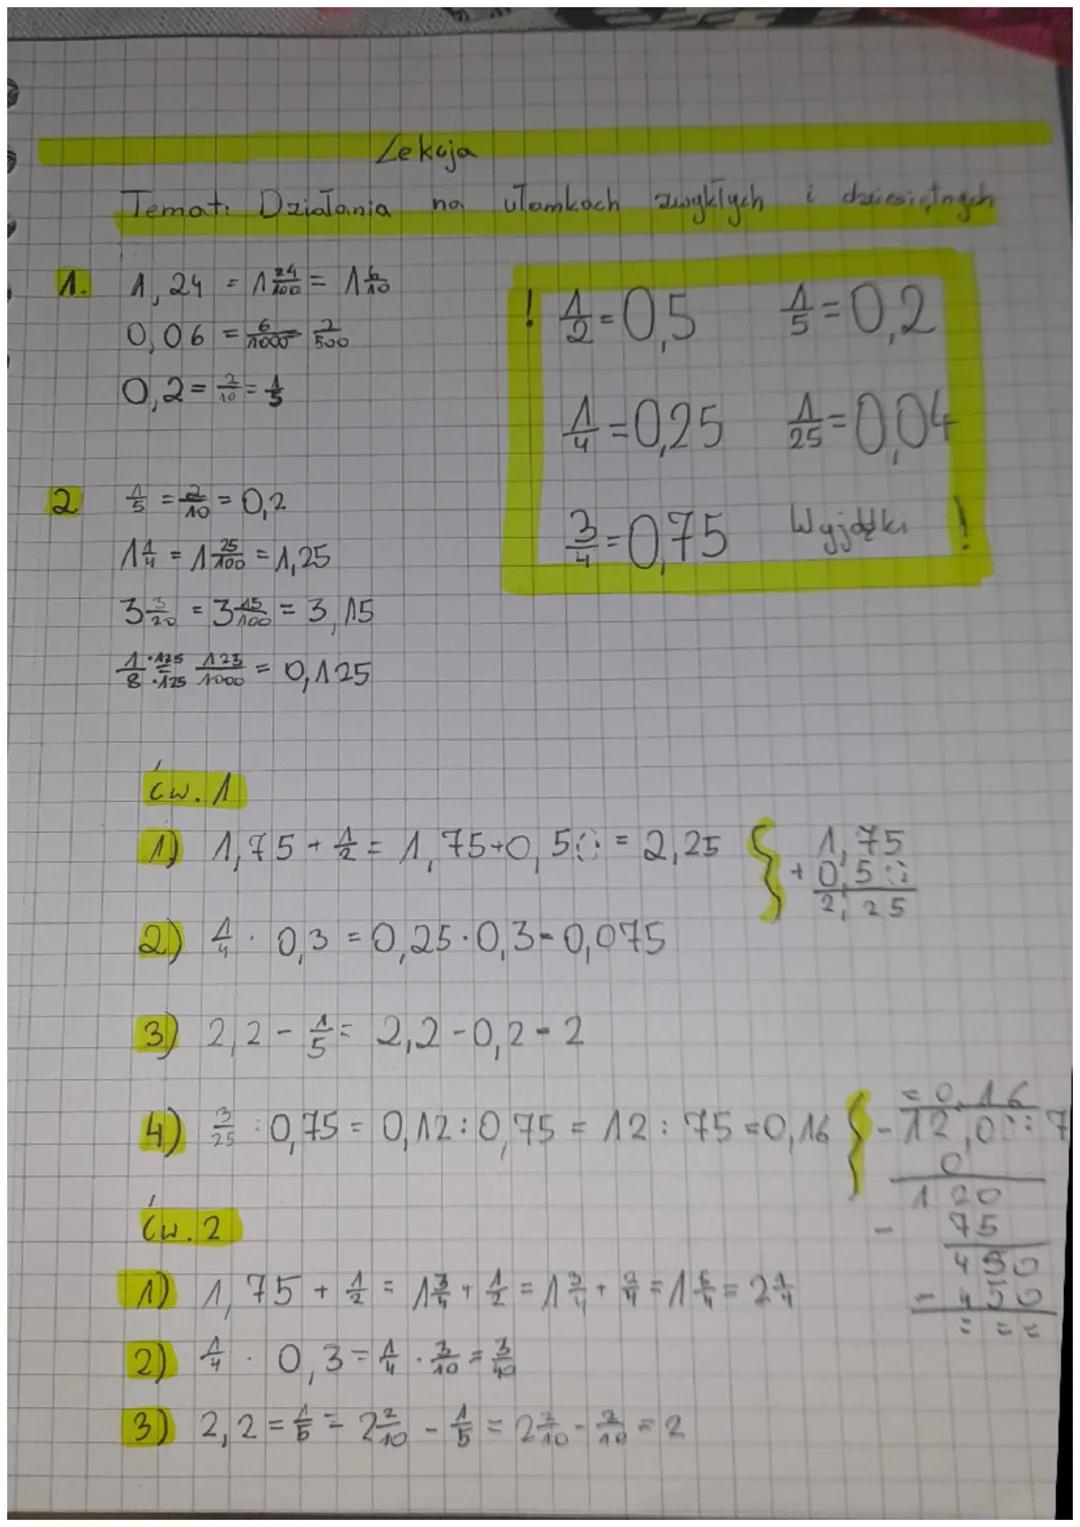 Lekcja
Temat: Działania na ułamkach zwykłych i dziesiętnych
1. 1,24 = 1 24/100 = 1 6/10
0,06 = 6/1000 = 2/500
0,2 = 2/10 = 1/5
! 1/2 = 0,5 1/5 = 0,2
1/4 = 0,25 1/25 = 0,04
3/4 = 0,75 Wyjątki !
2 1/5 = 2/10 = 0,2
1 1/4 = 1 25/100 = 1,25
3 3/20 = 3 15/100 = 3,15
1/8 ·125/·125 = 125/1000 = 0,125
Ćw. 1
1) 1,75 + 1/2 = 1,75+0,50 = 2,25 { 1,75
+ 0,50
2,25
2) 1/4 · 0,3 = 0,25·0,3=0,075
3) 2,2 - 1/5 = 2,2-0,2=2
4) 3/25 : 0,75 = 0,12:0,75 = 12:75=0,16 {
= 0,16
- 12,00:7
0
120
- 75
450
- 450
= = =
Ćw. 2
1) 1,75 + 1/2 = 1 3/4 + 1/2 = 1 3/4 + 2/4 = 1 5/4 = 2 1/4
2) 1/4 · 0,3 = 1/4 · 3/10 = 3/40
3) 2,2 = 1/5 = 2 2/10 - 1/5 = 2 2/10 - 2/10 = 2